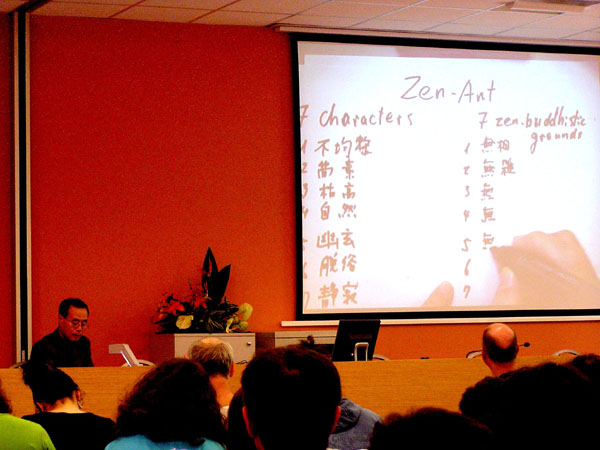 Zen-Art
7 characters
1 不均整
2 簡素
3 枯高
4 自然
5 幽玄
6 脱俗
7 静寂
7 zen-buddhistic
grounds
1 無相
2 無雜
3 無
4 無
5 無
6
7